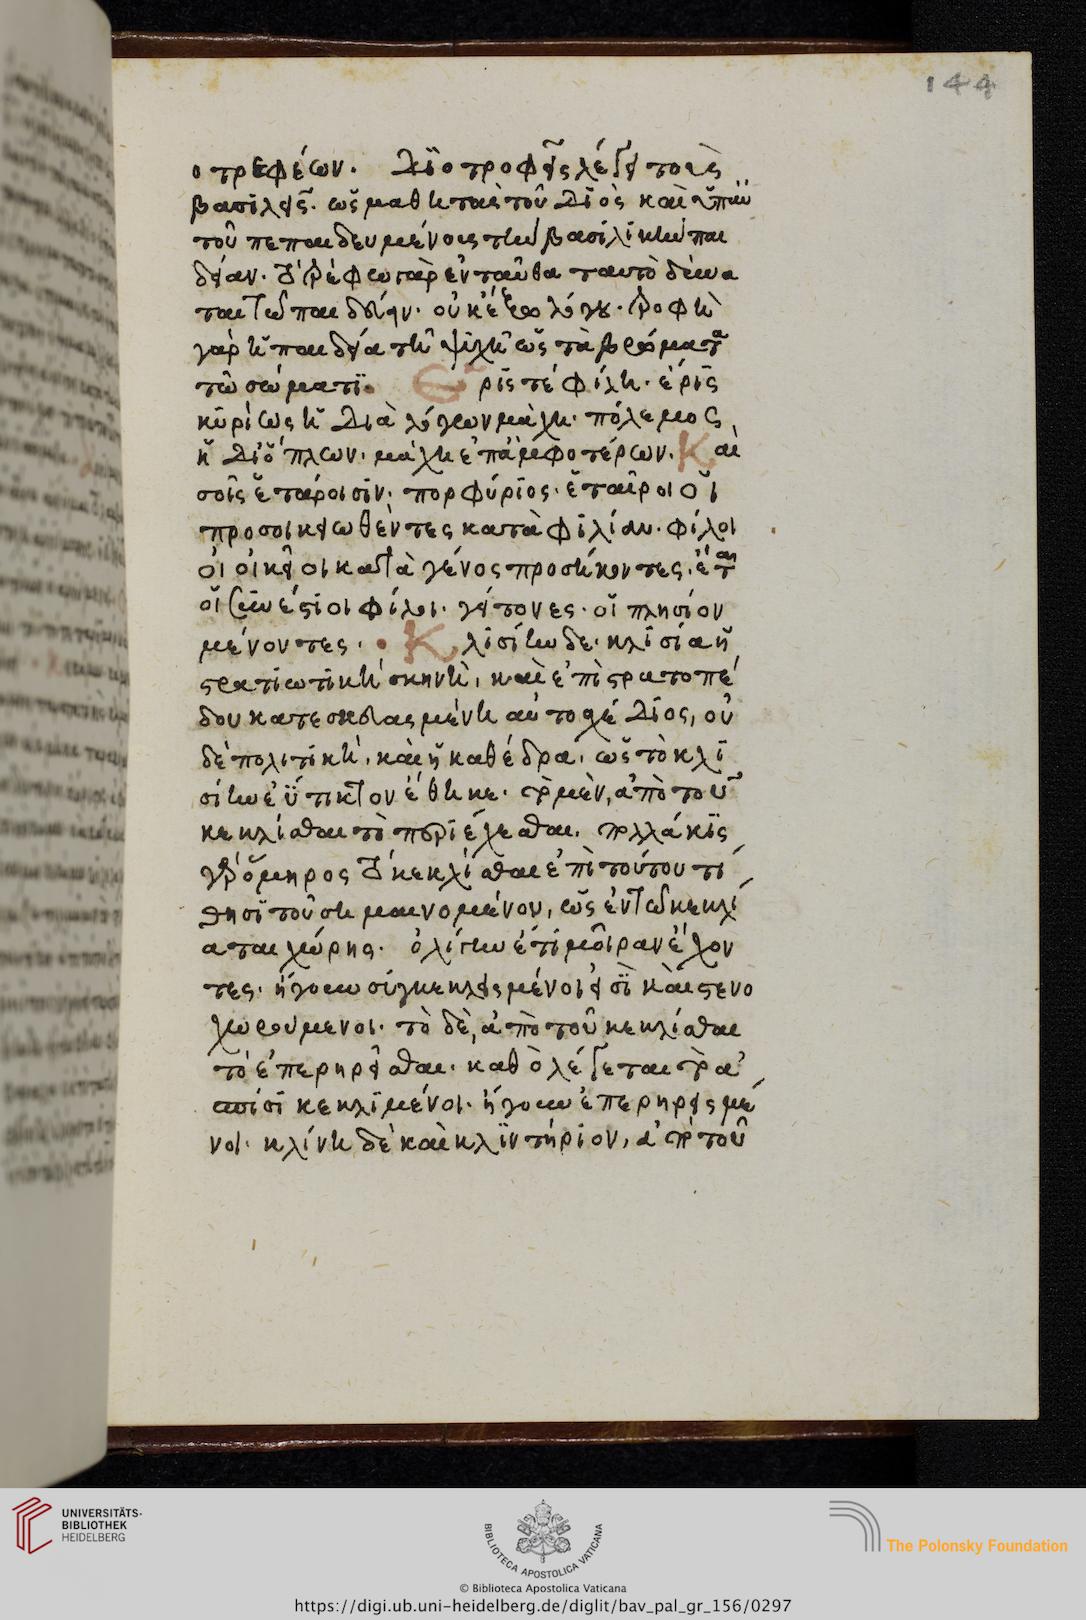 144
οτρεφέων. Διοτροφεῖς λέγει τοὺς
βασιλεῖς. ὡς μαθητὰς τοῦ Διὸς καὶ
τοῦ πεπαιδευμένους τὴν βασιλικὴν παι
δείαν. τρέφω γὰρ ἐνταῦθα ταυτὸ
τῶ παιδεύειν. οὐκ ἔξω λόγου. τροφὴ
γὰρ ἡ παιδεία τῆ ψυχῆ ὡς τὰ βρώματα
τῶ σώματι. Ἔρις τέ φίλη. ἔρις
κυρίως ἡ διὰ λόγων μάχη. πόλεμος
ἡ δι' ὅπλων. μάχη ἐπ' ἀμφοτέρων. Καὶ
σοῖς ἑτάροισιν. πορφύριος. ἑταῖροι οἱ
προσοικειωθέντες κατὰ φιλίαν. φίλοι
οἱ οἰκεῖοι κατὰ γένος προσήκοντες. ἔται
οἱ συνέστιοι φίλοι. γείτονες. οἱ πλησίον
μένοντες. Κλισίην δε. κλισία ἡ
στρατιωτικὴ σκηνὴ, καὶ ἐπὶ στρατοπέ
δου κατεσκευασμένη αὐτοσχέδιος, οὐ
δὲ πολιτικὴ, καὶ ἡ καθέδρα. ὡς τὸ κλι
σίην εὔτικτον ἔθηκε. παρὰ μὲν, ἀπὸ τοῦ
κεκλίσθαι τὸ περιέχεσθαι. πολλάκις
γὰρ ὅμηρος τὸ κεκλίσθαι ἐπὶ τούτου τί
θησι τοῦ σημαινομένου, ὡς ἐν τῶ κεκλί
αται χώρης. ὀλίγην ἔτι μοῖραν ἔχον
τες. ἤγουν συγκεκλεισμένοι εἰσὶ καὶ στενο
χωρούμενοι. τὸ δὲ, ἀπὸ τοῦ κεκλίσθαι
τὸ ἐπερηρεῖσθαι. καθ' ὃ λέγεται παρὰ
ἀσπίσι κεκλιμένοι. ἤγουν ἐπερηρεισμέ
νοι. κλίνη δὲ καὶ κλιντήριον, ἀπὸ τοῦ
UNIVERSITÄTS-
BIBLIOTHEK
HEIDELBERG
BIBLIOTECA APOSTOLICA VATICANA
The Polonsky Foundation
© Biblioteca Apostolica Vaticana
https://digi.ub.uni-heidelberg.de/diglit/bav_pal_gr_156/0297